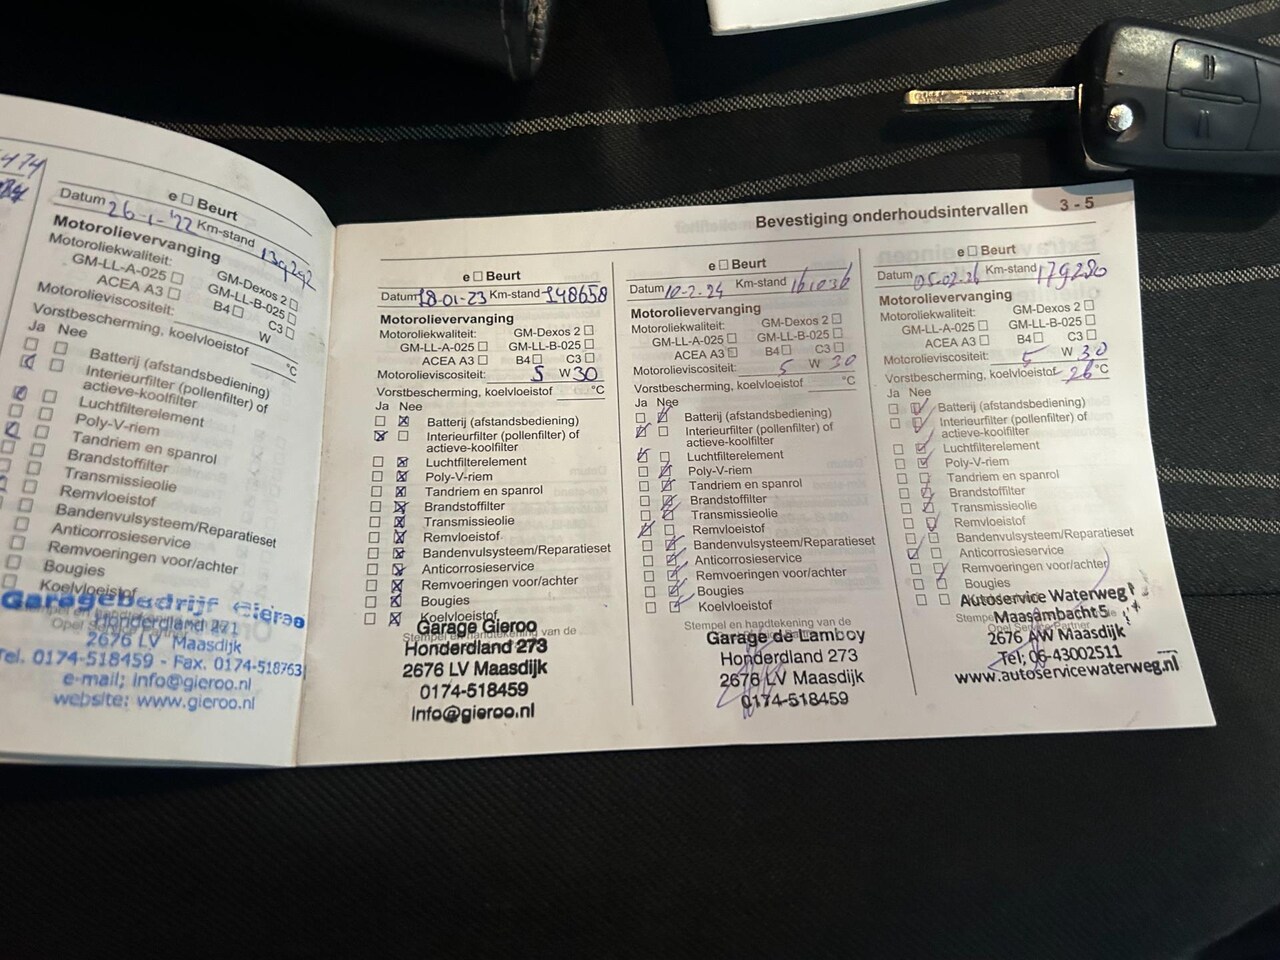 e ☐ Beurt
Datum 26-1-'22 Km-stand 139292
Motorolievervanging
Motoroliekwaliteit:
GM-Dexos 2 ☐
GM-LL-A-025 ☐ GM-LL-B-025 ☐
ACEA A3 ☐ B4 ☐ C3 ☐
Motorolieviscositeit: W
Vorstbescherming, koelvloeistof °C
Ja Nee
Batterij (afstandsbediening)
Interieurfilter (pollenfilter) of
actieve-koolfilter
Luchtfilterelement
Poly-V-riem
Tandriem en spanrol
Brandstoffilter
Transmissieolie
Remvloeistof
Bandenvulsysteem/Reparatieset
Anticorrosieservice
Remvoeringen voor/achter
Bougies
Koelvloeistof
Garagebedrijf Gieroo
Honderdland 271
2676 LV Maasdijk
Tel. 0174-518459 - Fax. 0174-518763
e-mail; info@gieroo.nl
website: www.gieroo.nl
Bevestiging onderhoudsintervallen 3 - 5
e ☐ Beurt
Datum 18-01-23 Km-stand 148658
Motorolievervanging
Motoroliekwaliteit: GM-Dexos 2 ☐
GM-LL-A-025 ☐ GM-LL-B-025 ☐
ACEA A3 ☐ B4 ☐ C3 ☐
Motorolieviscositeit: 5 W 30
Vorstbescherming, koelvloeistof °C
Ja Nee
Batterij (afstandsbediening)
Interieurfilter (pollenfilter) of
actieve-koolfilter
Luchtfilterelement
Poly-V-riem
Tandriem en spanrol
Brandstoffilter
Transmissieolie
Remvloeistof
Bandenvulsysteem/Reparatieset
Anticorrosieservice
Remvoeringen voor/achter
Bougies
Koelvloeistof
Stempel en handtekening van de
Garage Gieroo
Honderdland 273
2676 LV Maasdijk
0174-518459
info@gieroo.nl
e ☐ Beurt
Datum 10-2-24 Km-stand 161036
Motorolievervanging
Motoroliekwaliteit: GM-Dexos 2 ☐
GM-LL-A-025 ☐ GM-LL-B-025 ☐
ACEA A3 ☐ B4 ☐ C3 ☐
Motorolieviscositeit: 5 W 30
Vorstbescherming, koelvloeistof °C
Ja Nee
Batterij (afstandsbediening)
Interieurfilter (pollenfilter) of
actieve-koolfilter
Luchtfilterelement
Poly-V-riem
Tandriem en spanrol
Brandstoffilter
Transmissieolie
Remvloeistof
Bandenvulsysteem/Reparatieset
Anticorrosieservice
Remvoeringen voor/achter
Bougies
Koelvloeistof
Stempel en handtekening van de
Garage de Lamboy
Honderdland 273
2676 LV Maasdijk
0174-518459
e ☐ Beurt
Datum 05-02-26 Km-stand 179280
Motorolievervanging
Motoroliekwaliteit: GM-Dexos 2 ☐
GM-LL-A-025 ☐ GM-LL-B-025 ☐
ACEA A3 ☐ B4 ☐ C3 ☐
Motorolieviscositeit: 5 W 30
Vorstbescherming, koelvloeistof -26 °C
Ja Nee
Batterij (afstandsbediening)
Interieurfilter (pollenfilter) of
actieve-koolfilter
Luchtfilterelement
Poly-V-riem
Tandriem en spanrol
Brandstoffilter
Transmissieolie
Remvloeistof
Bandenvulsysteem/Reparatieset
Anticorrosieservice
Remvoeringen voor/achter
Bougies
Autoservice Waterweg
Maasambacht 5
2676 AW Maasdijk
Tel; 06-43002511
www.autoservicewaterweg.nl